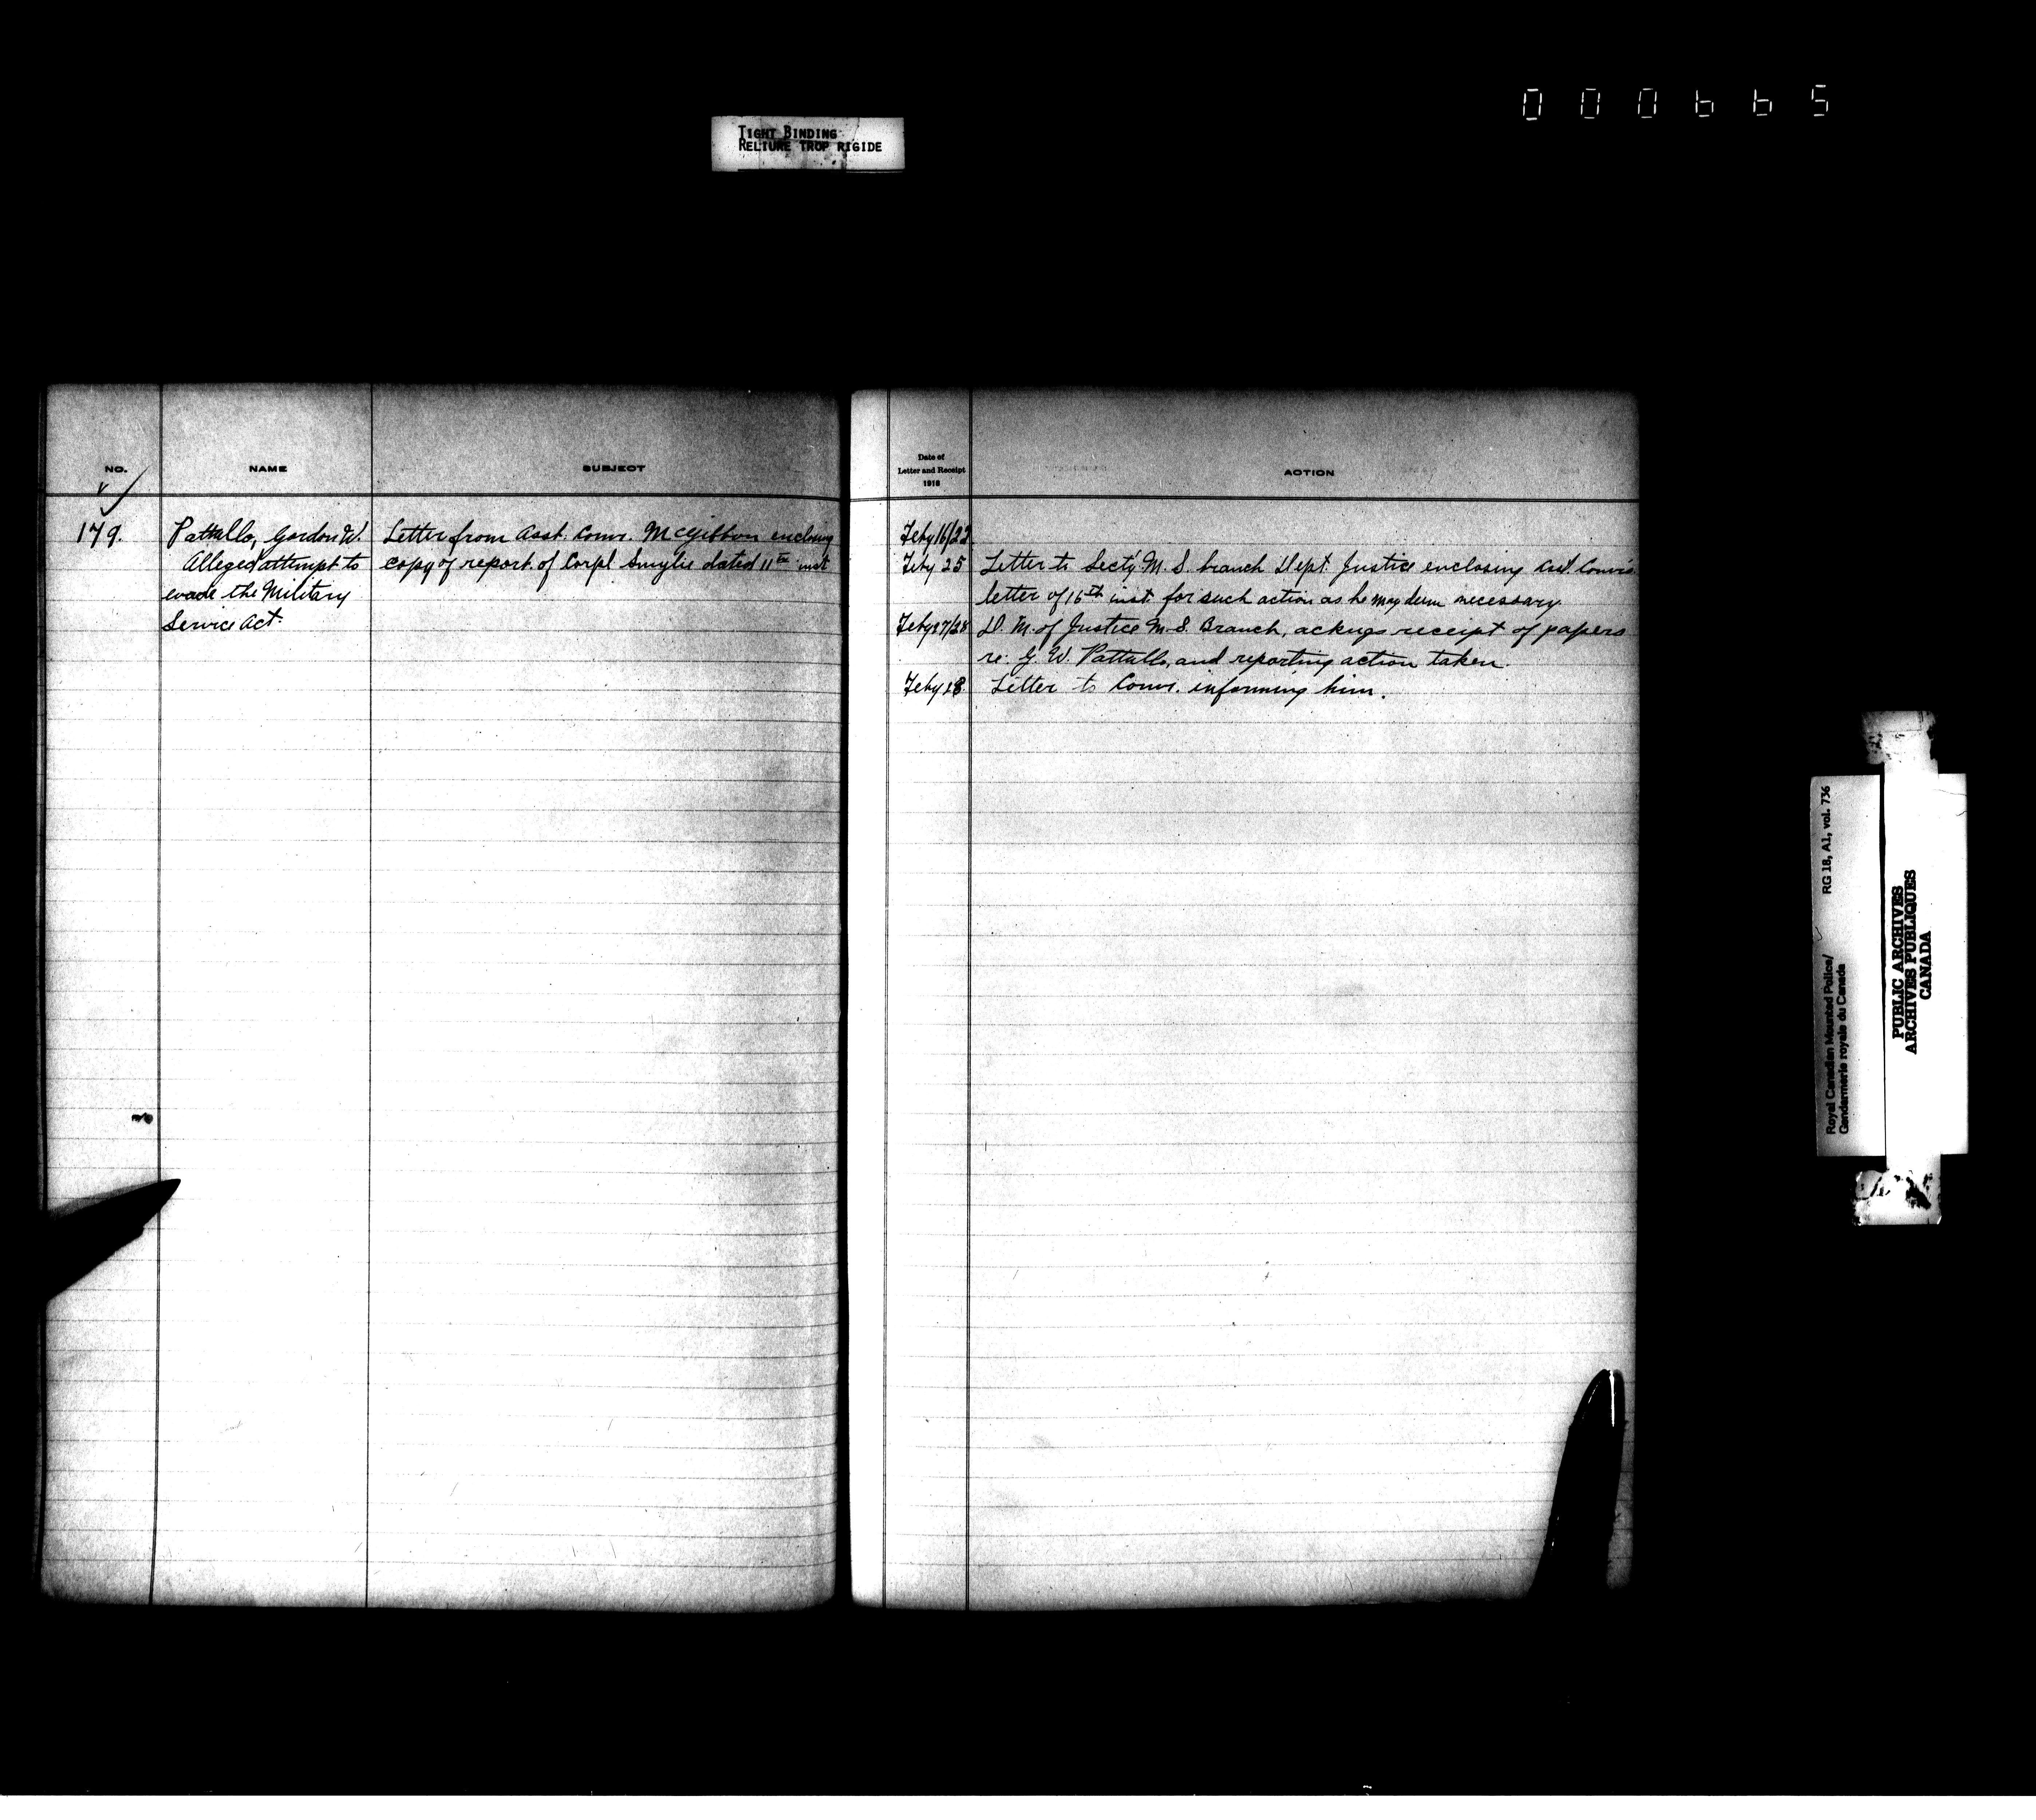 000665
TIGHT BINDING
RELIURE TROP RIGIDE
NO.
NAME
SUBJECT
179.
Pattullo, Gordon W.
Alleged attempt to
evade the Military
Service Act.
Letter from Asst. Comr. McGibbon enclosing
copy of report of Corpl Smylie dated 11th inst
Date of
Letter and Receipt
1918
ACTION
Feby 16/22
Feby 25 Letter to Secty M. S. branch Dept. Justice enclosing Asst. Comr's
letter of 16th inst. for such action as he may deem necessary.
Feby 27/28 D. M. of Justice M. S. Branch, ackngs receipt of papers
re. G. W. Pattullo, and reporting action taken.
Feby 28 Letter to Comr. informing him.
Royal Canadian Mounted Police/ RG 18, A1, vol. 736
Gendarmerie royale du Canada
PUBLIC ARCHIVES
ARCHIVES PUBLIQUES
CANADA